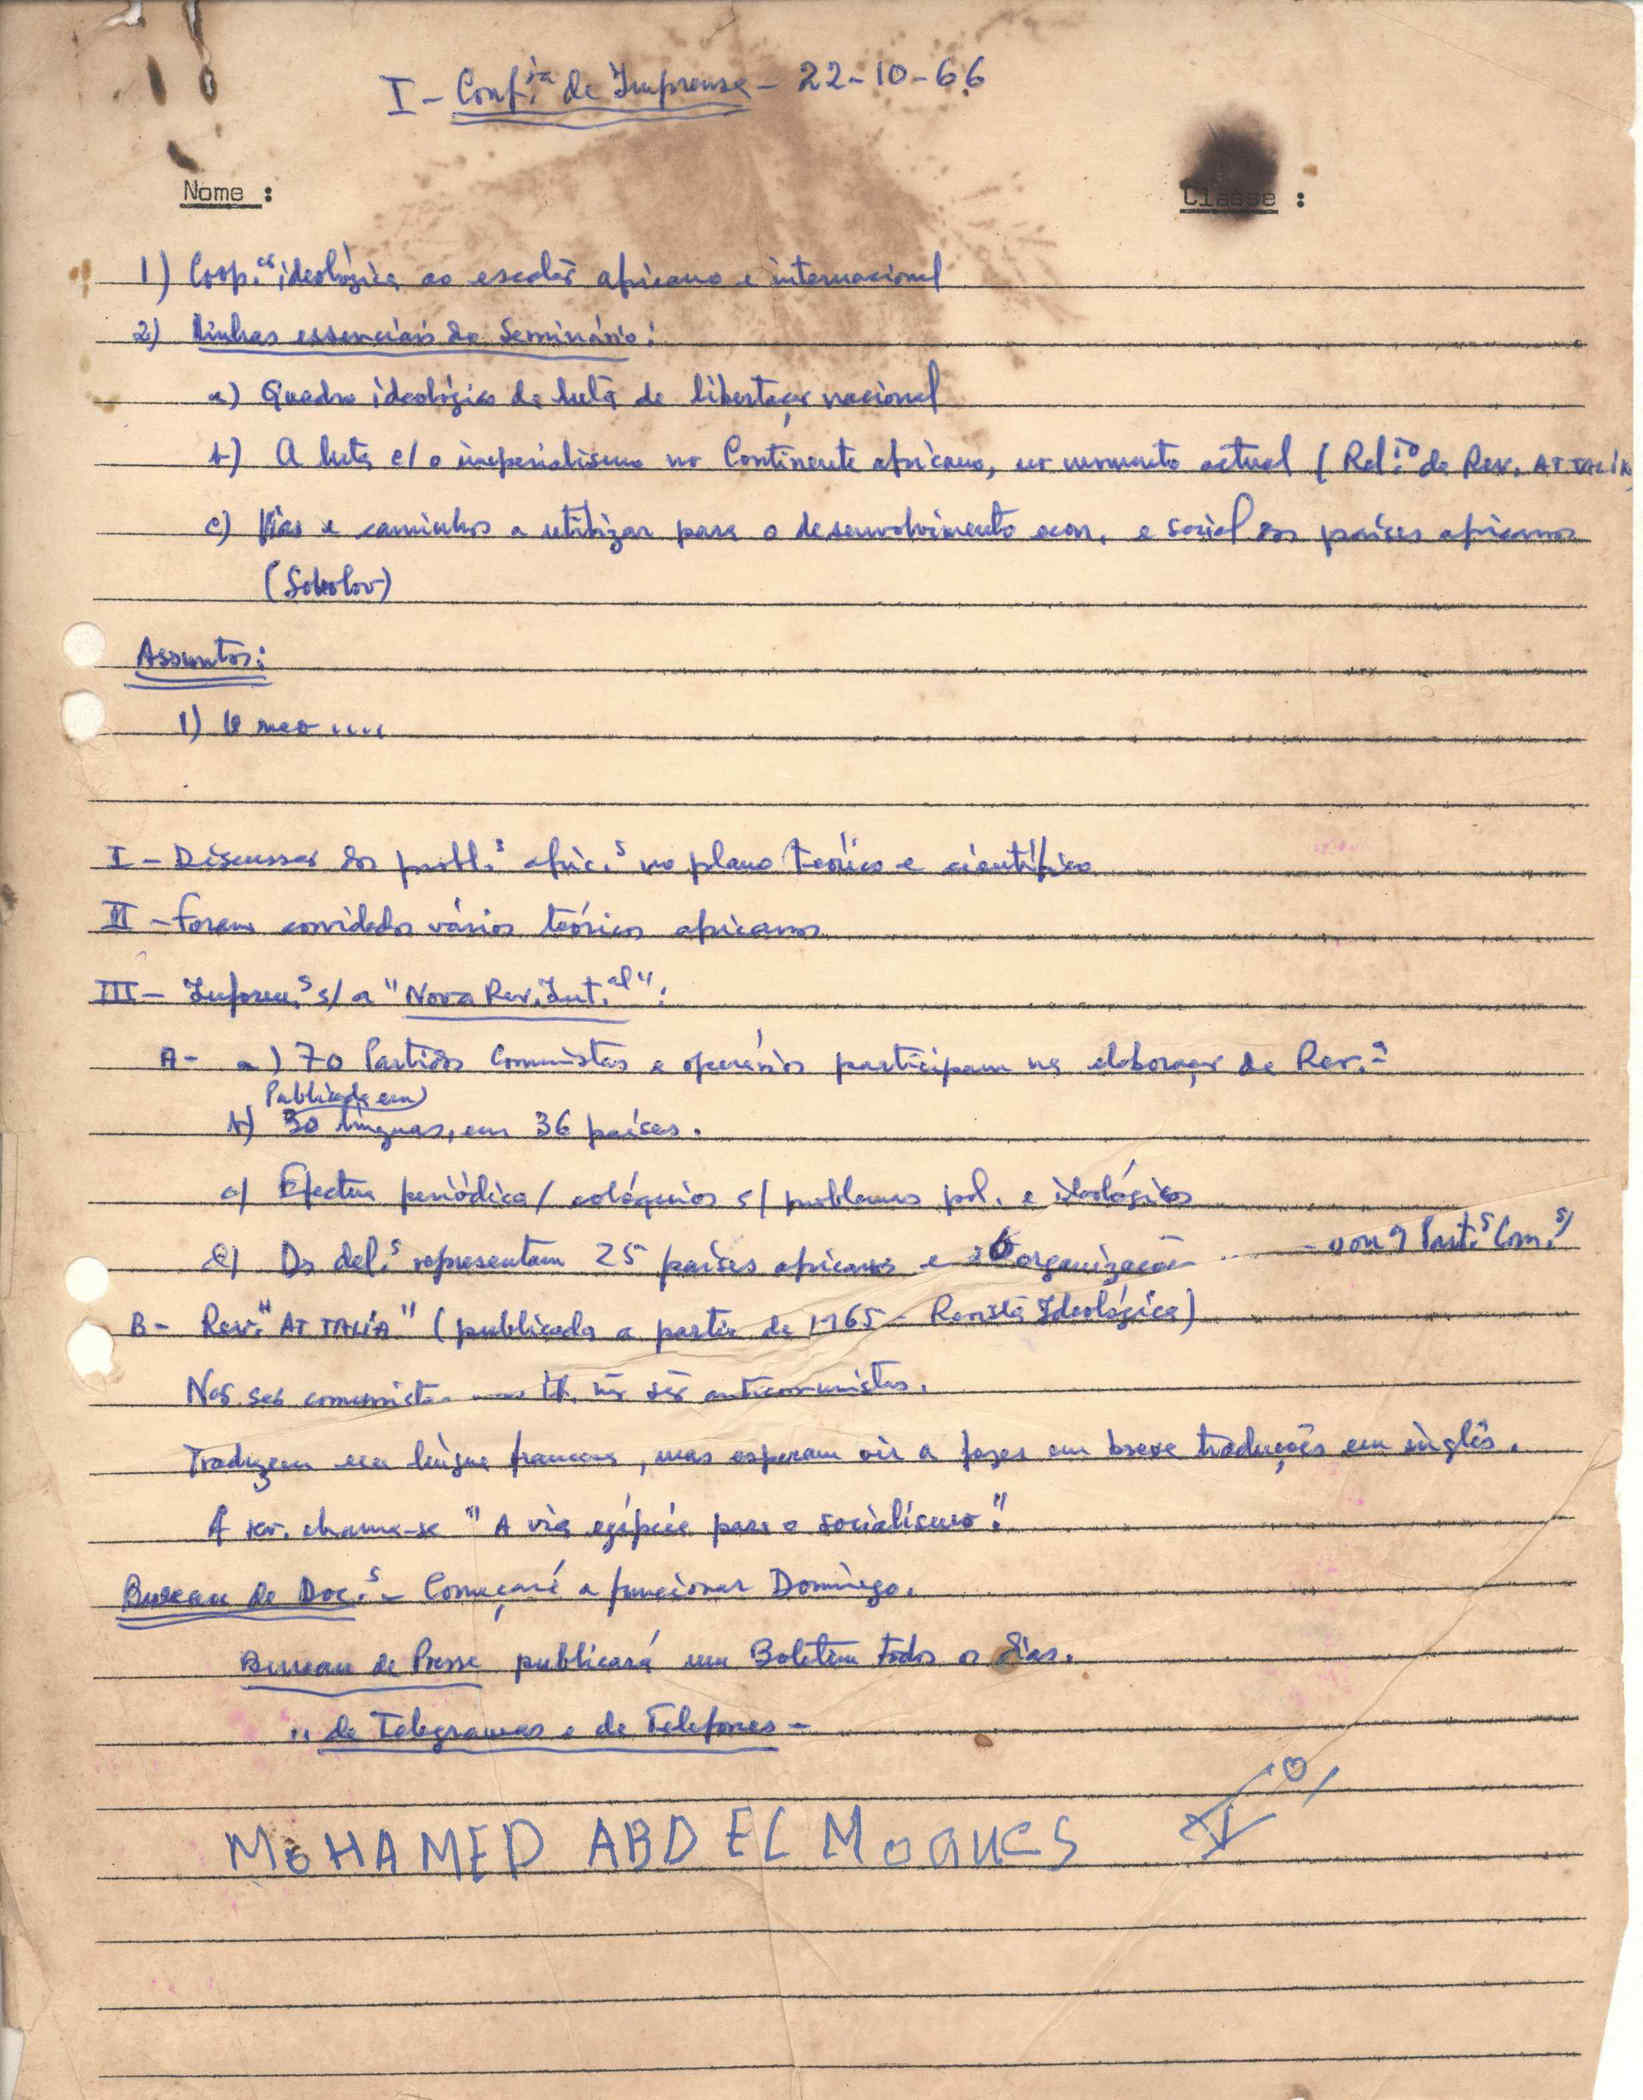 I - Conf.ia de Imprensa - 22-10-66
Nome :
Classe :
1) Coop.ão ideológica ao escalão africano e internacional
2) Linhas essenciais do Seminário:
a) Quadro ideológico da luta de libertação nacional
b) A luta c/ o imperialismo no Continente africano, no momento actual (Rel.io da Rev. AT TALIA)
c) Vias e caminhos a utilizar para o desenvolvimento econ. e social dos países africanos
(Sobolov)
Assuntos:
1) O meo ....
I - Discussão dos probl.s afric.s no plano teórico e científico
II - Foram convidados vários teóricos africanos
III - Inform.s s/ a "Nova Rev. Int.al":
A- a) 70 Partidos Comunistas e operários participam na elaboração da Rev.a
Publicada em
b) 30 línguas, em 36 países.
c) Efectua periódica/ colóquios s/ problemas pol. e ideológicos
d) Os del.s representam 25 países africanos e organização - ou 9 Part.s Com.s/
B- Rev. "AT TALIA" (publicada a partir de 1965 - Revista Ideológica)
Não são comunistas mas tb. não são anticomunistas.
Traduzem em língua francesa, mas esperam vir a fazer em breve traduções em inglês.
A rev. chama-se "A via egípcia para o socialismo".
Bureau de Doc.s - Começará a funcionar Domingo.
Bureau de Presse publicará um Boletim todos os dias.
" de Telegramas e de Telefones -
MOHAMED ABD EL